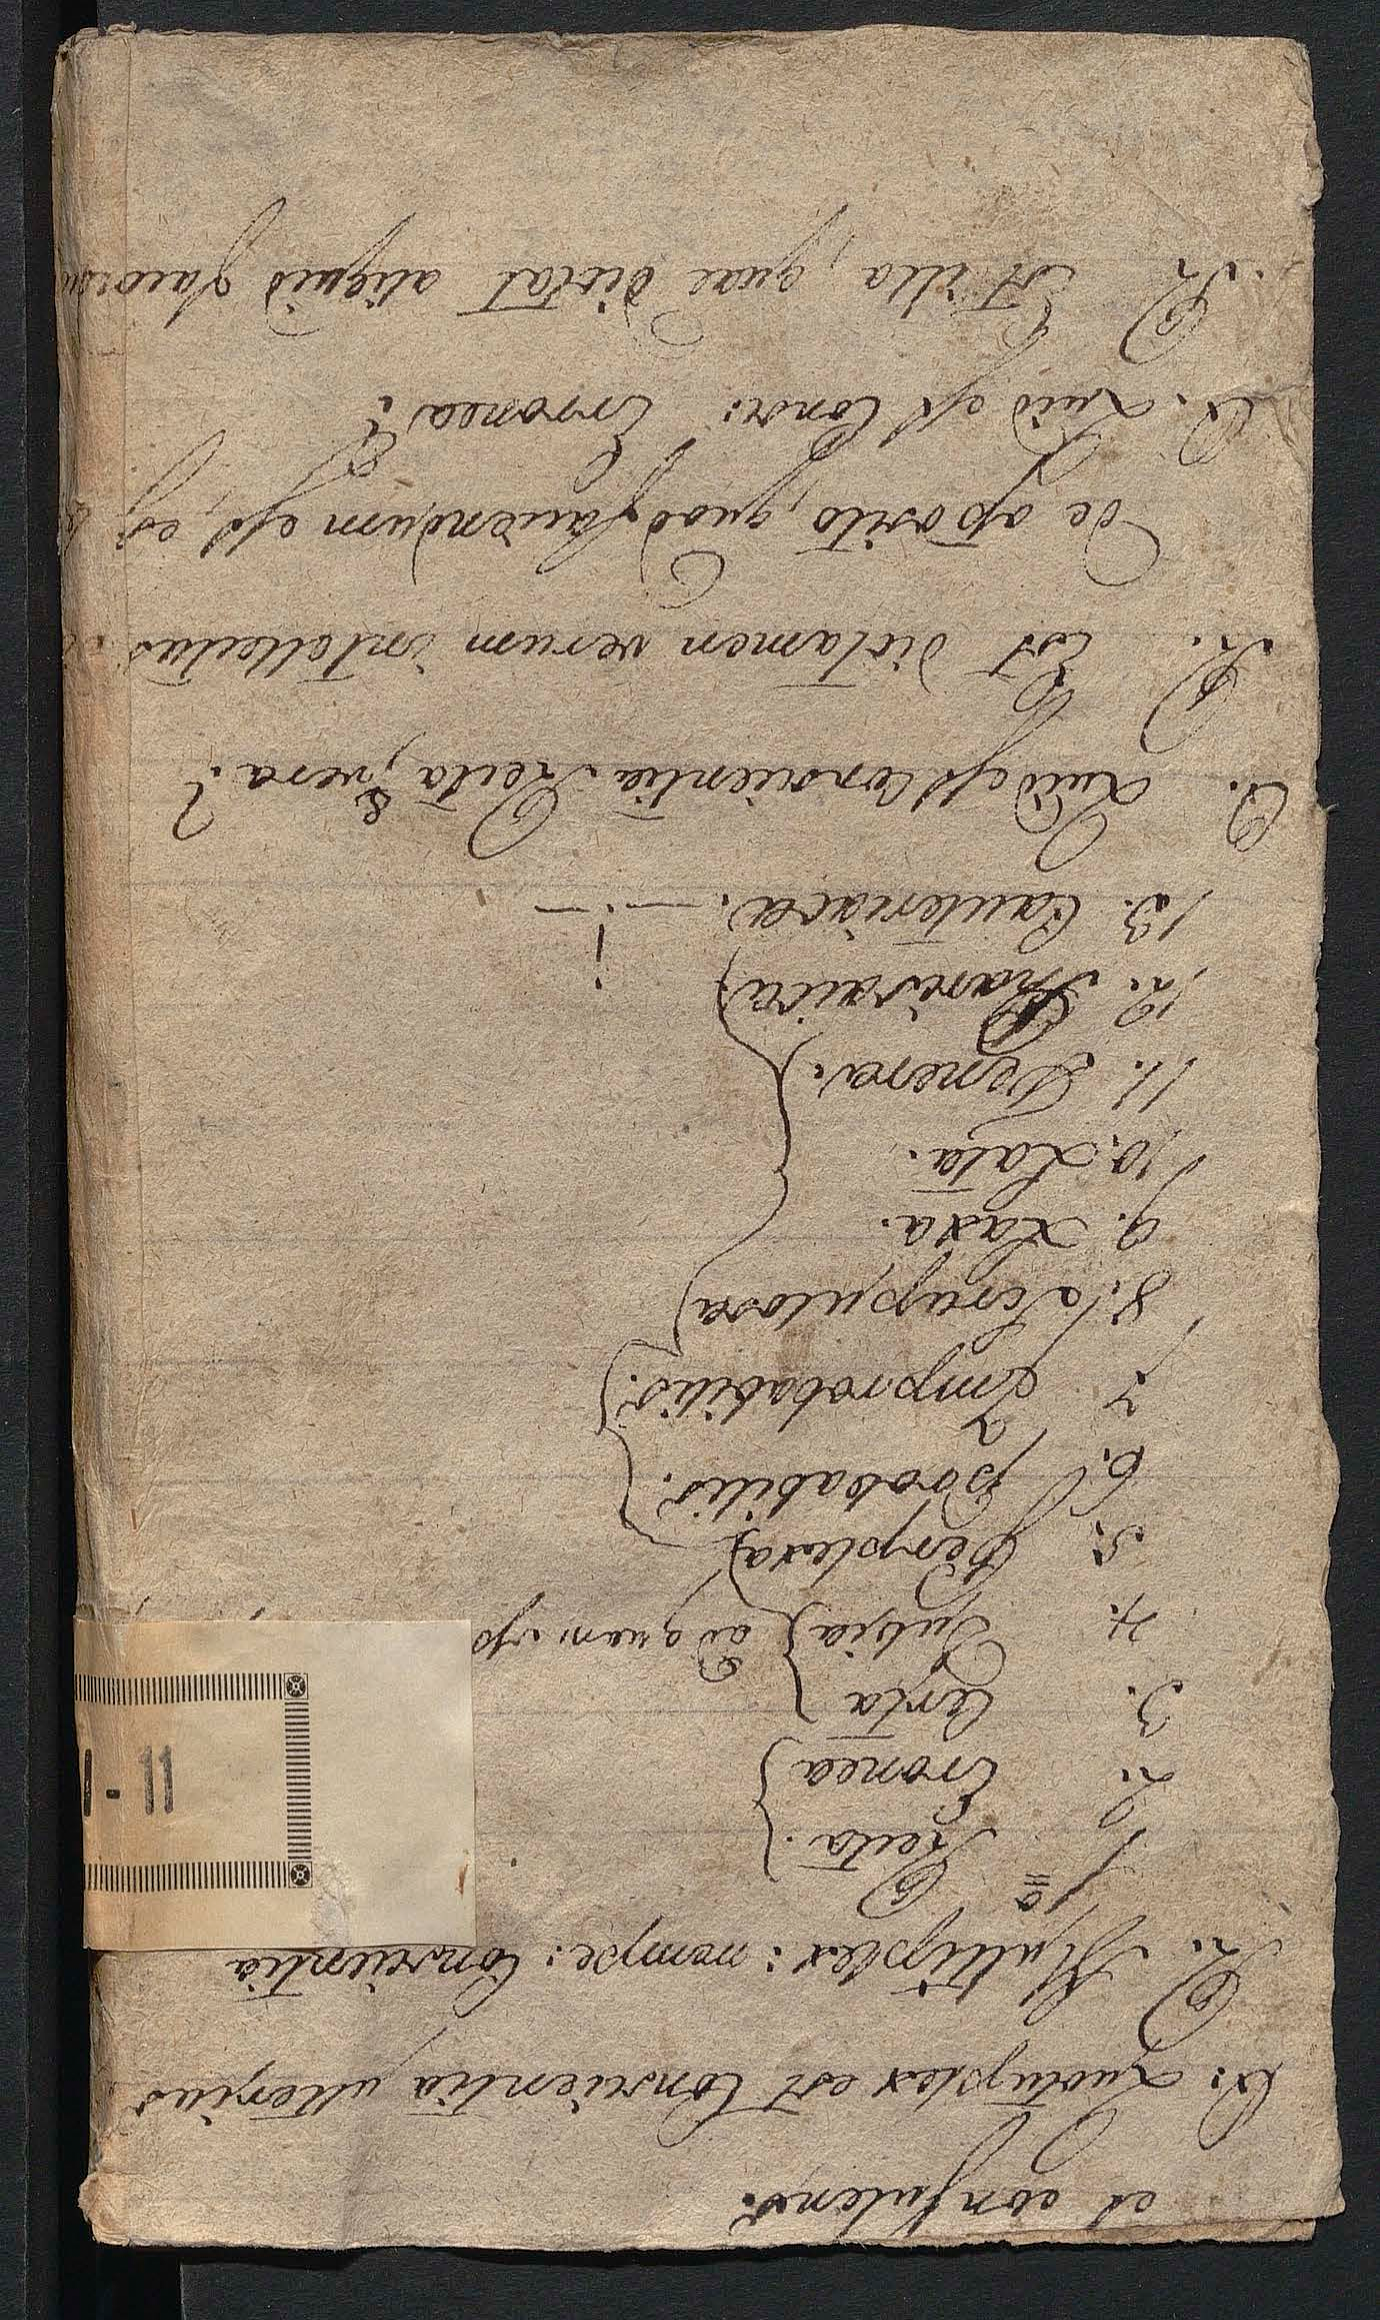 et consulens.
Q: Quotuplex est Conscientia ulterius
R. Multiplex: nempe: Conscientia
1º Recta.
2. Eronea
3. Certa
4. Dubia ad quam
5. Perplexa
6. Probabilis.
7 Improbabilis.
8. Scrupulosa
9. Laxa.
10. Lata.
11. Tenera.
12. Pharisaica
13. Cauteriaca.
Q. Quid est Conscientia Recta, & vera?
R. Est dictamen verum intellectus
de aposito, quod faciendum est, et
Q. Quid est Consc: Erronea?
R Est illa, quae dictat aliquid
I-11